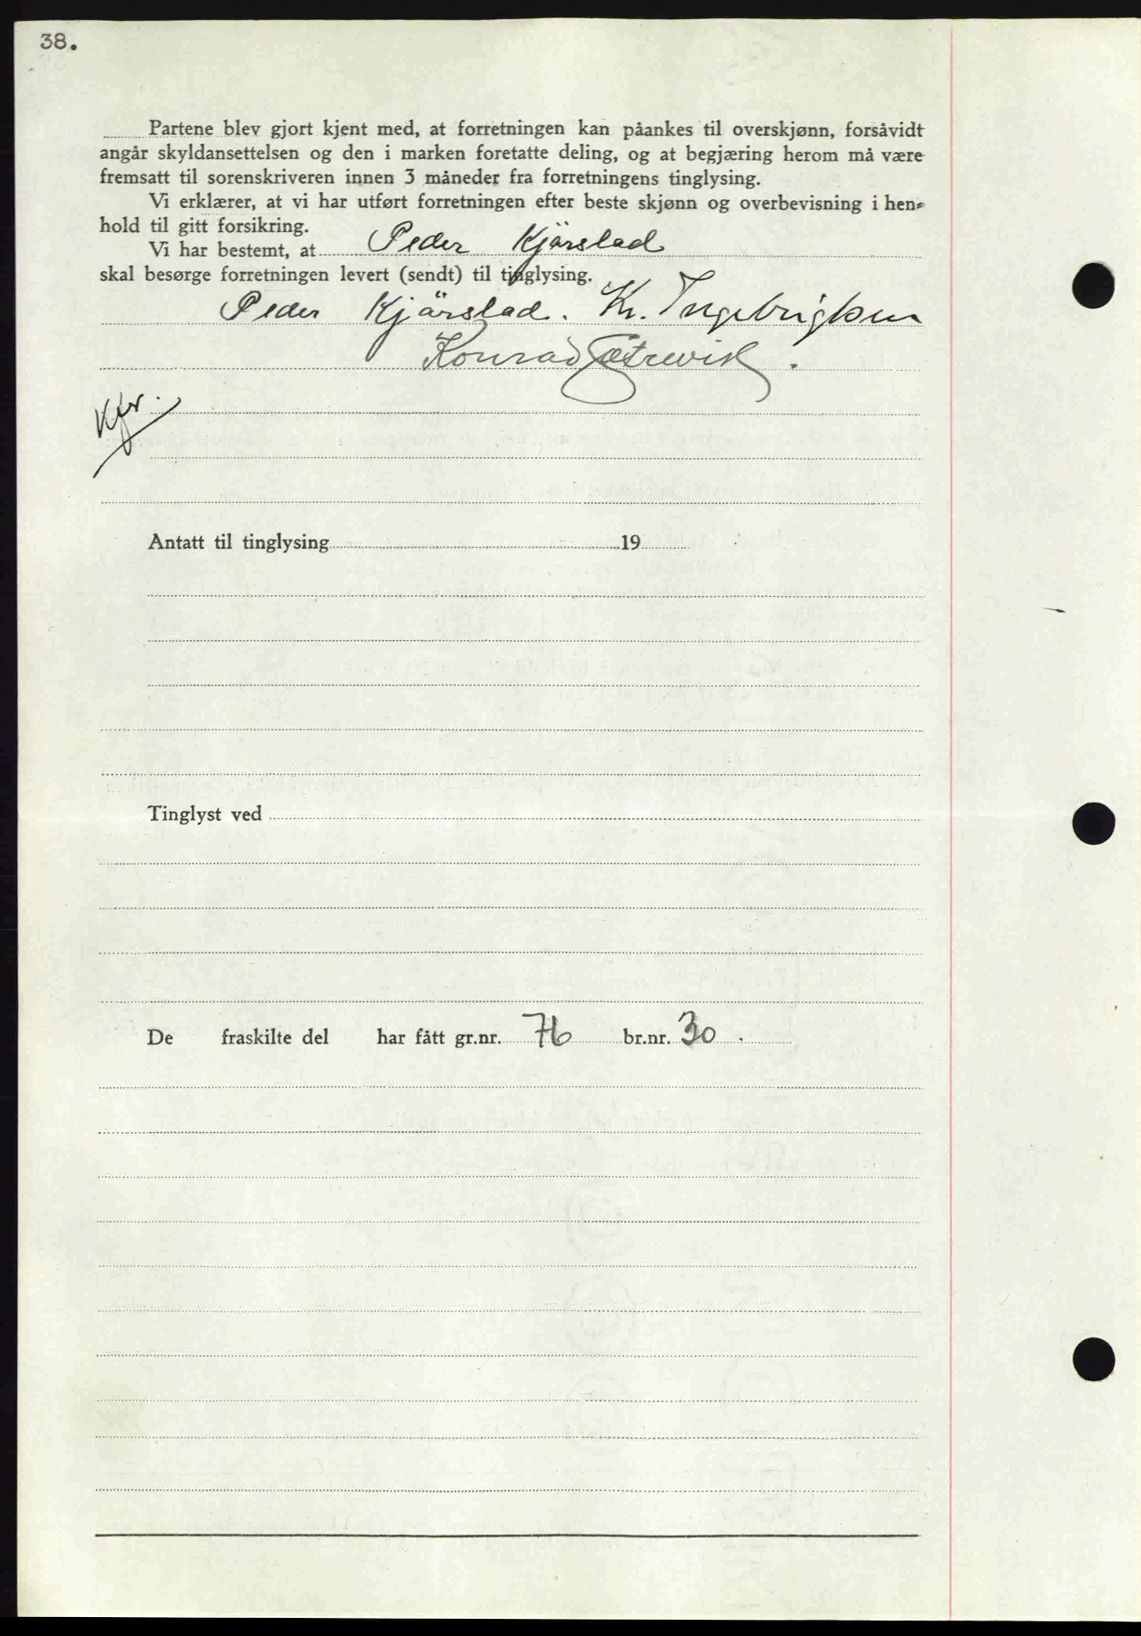 38.
Partene blev gjort kjent med, at forretningen kan påankes til overskjønn, forsåvidt
angår skyldansettelsen og den i marken foretatte deling, og at begjæring herom må være
fremsatt til sorenskriveren innen 3 måneder fra forretningens tinglysing.
Vi erklærer, at vi har utført forretningen efter beste skjønn og overbevisning i hen-
hold til gitt forsikring.
Vi har bestemt, at Peder Kjärstad
skal besørge forretningen levert (sendt) til tinglysing.
Peder Kjärstad. Kr. Ingebrigtsen
Konrad Sætrevik.
Kfr.
Antatt til tinglysing 19
Tinglyst ved
De fraskilte del har fått gr.nr. 76 br.nr. 30.